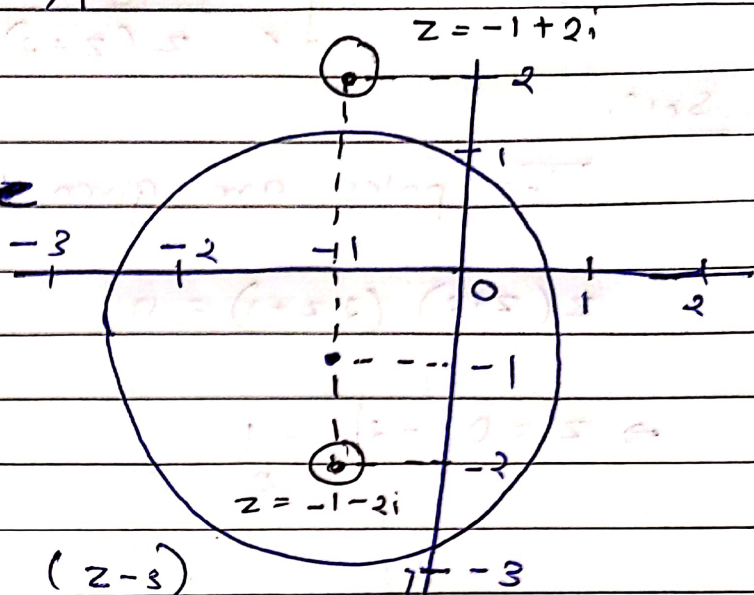 z = -1 + 2i
2
1
-3 -2 -1
0 1 2
-1
-2
z = -1 - 2i
-3